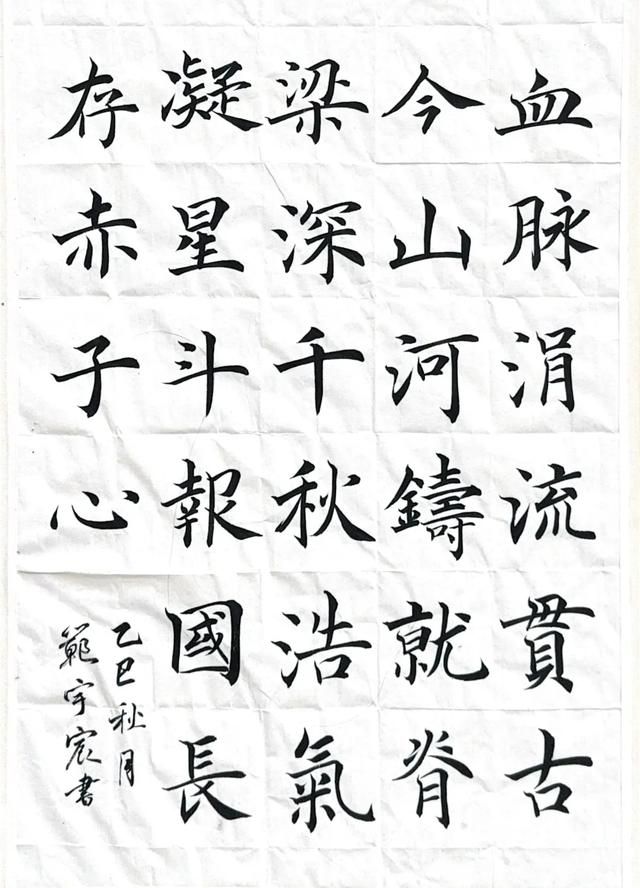 血脉涓流貫古
今山河鑄就脊
梁深千秋浩氣
凝星斗報國長
存赤子心
乙巳秋月
範宇宸書